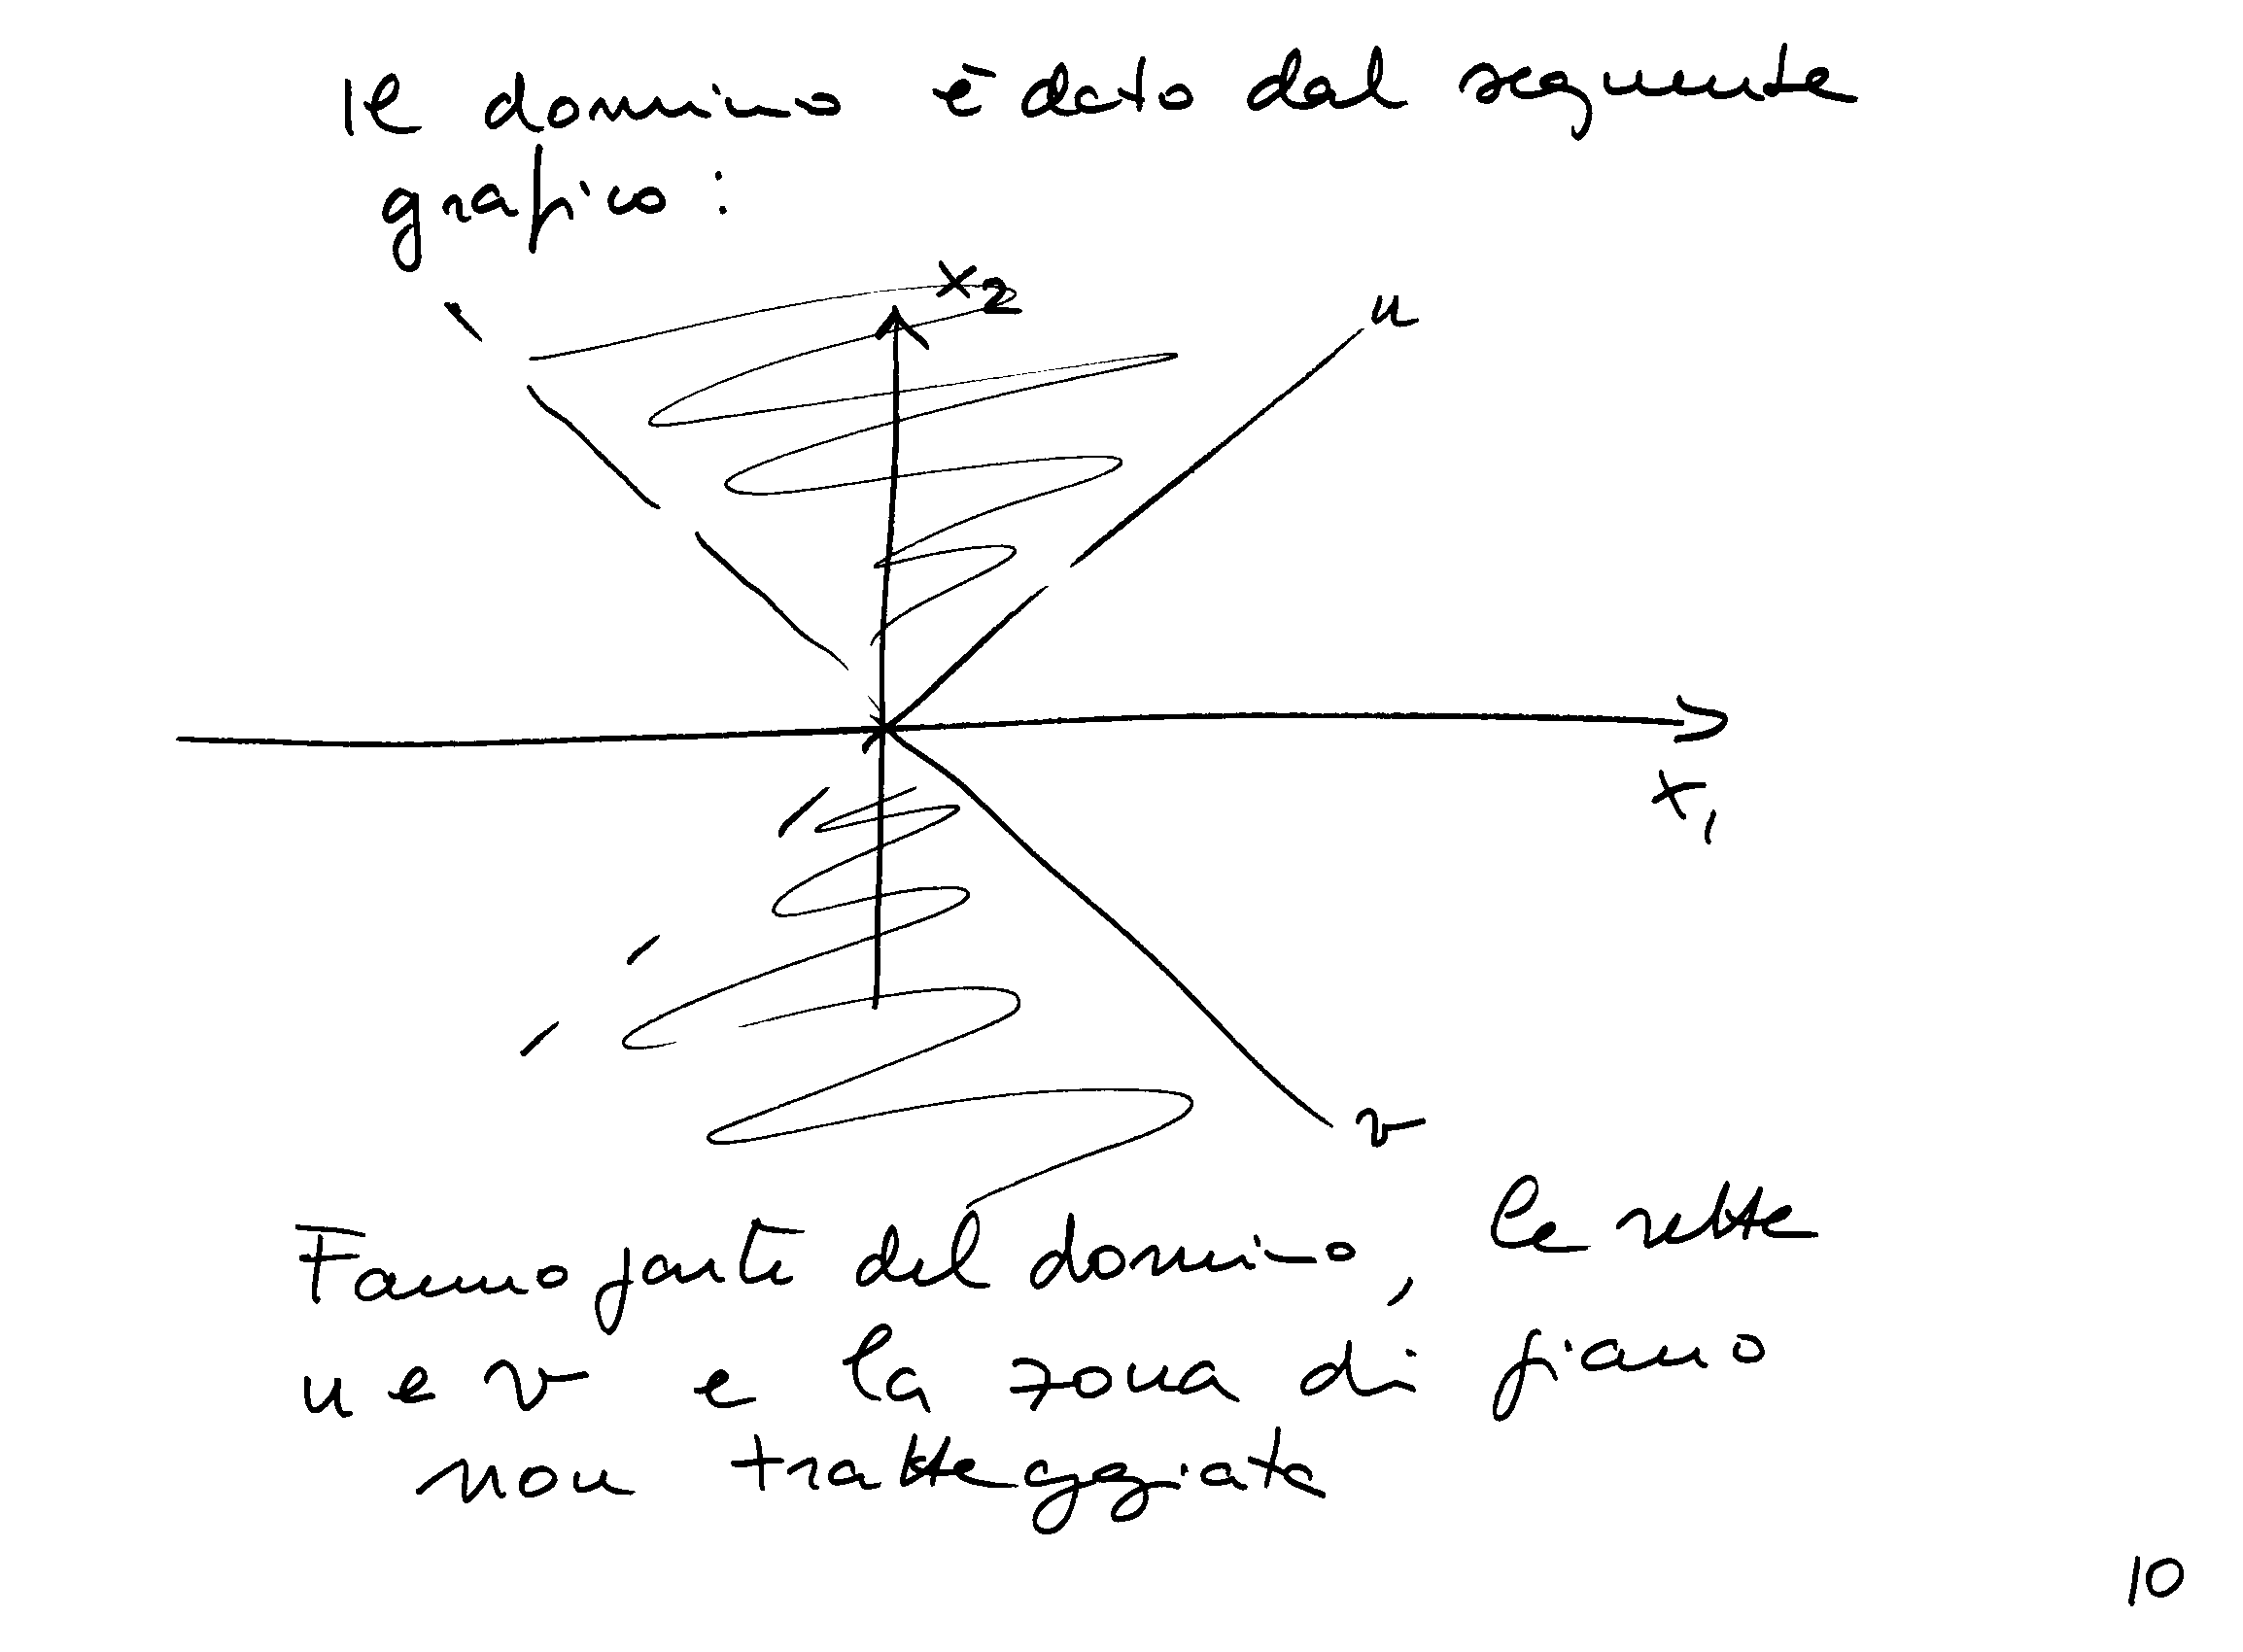 Il dominio è dato dal seguente
grafico:
x2
u
x1
v
Fanno parte del dominio, le rette
u e v e la zona di piano
non tratteggiata
10